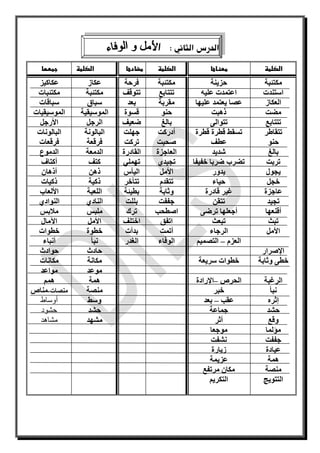 الدرس الثاني : الأمل و الوفاء
الكلمة معناها الكلمة مضادها الكلمة جمعها
مكتئبة حزينة مكتئبة فرحة عكاز عكاكيز
استندت اعتمدت عليه تتتابع تتوقف مكتبة مكتبات
العكاز عصا يعتمد عليها مقربة بعد سياق سياقات
مضت ذهبت حنو قسوة الموسيقية الموسيقيات
تتتابع تتوالى بالغ ضعيف الرجل الأرجل
تتقاطر تسقط قطرة قطرة أدركت جهلت البالونة البالونات
حنو عطف صحبت تركت فرقعة فرقعات
بالغ شديد العاجزة القادرة الدمعة الدموع
تربت تضرب ضربا خفيفا تجيدي تهملي كتف أكتاف
يجول يدور الأمل اليأس ذهن أذهان
خجل حياء تتقدم تتأخر ذكية ذكيات
عاجزة غير قادرة وثابة بطيئة اللعبة الألعاب
تجيد تتقن جففت بللت النادي النوادي
أقنعها أجعلها ترضى اصطحب ترك ملبس ملابس
ثبت اتفق اختلف الأمل الآمال
الأمل الرجاء أتمت بدأت خطوة خطوات
العزم – التصميم الوفاء الغدر نبأ أنباء
الإصرار حادث حوادث
خطى وثابة خطوات سريعة مكانة مكانات
موعد مواعد
الرغبة الحرص –الإرادة همة همم
نبأ خبر منصة منصات-مناص
إثره عقب – بعد وسط أوساط
حشد جماعة حشد حشود
وقع أثر مشهد مشاهد
مؤلما موجعا
جففت نشفت
عيادة زيارة
همة عزيمة
منصة مكان مرتفع
التتويج التكريم